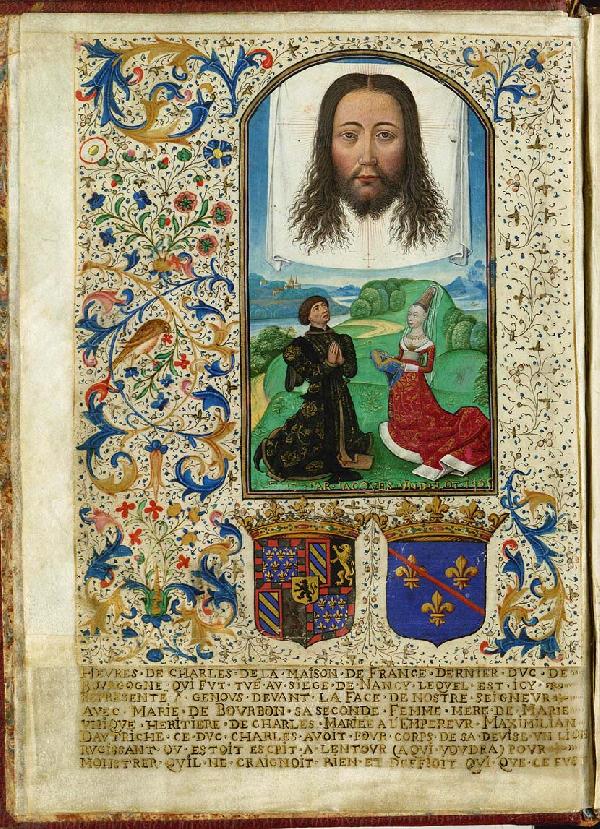 HEVRES · DE CHARLES · DE LA · MAISON · DE · FRANCE · DERNIER · DVC · DE ·
BOVRGOGNE · QVI FVT · TVÉ · AV · SIEGE · DE · NANCY · LEQVEL · EST · ICY ·
REPRESENTÉ · A GENOVS · DEVANT · LA · FACE · DE · NOSTRE · SEIGNEVR ·
AVEC · MARIE · DE · BOVRBON · SA · SECONDE · FEMME · MERE · DE · MARIE
VNIQVE · HERITIERE · DE · CHARLES · MARIÉE · A L'EMPEREVR · MAXIMILIAN
DAVTRICHE · CE · DVC · CHARLES · AVOIT · POVR · CORPS · DE · SA · DEVISE · VN LION
RVGISSANT · OV · ESTOIT · ESCRIT · A · LENTOVR · (A QVI · VOVDRA) POVR ·
MONSTRER · QV'IL · NE · CRAIGNOIT · RIEN · ET · DEFFIOIT · QVI · QVE · CE FVST